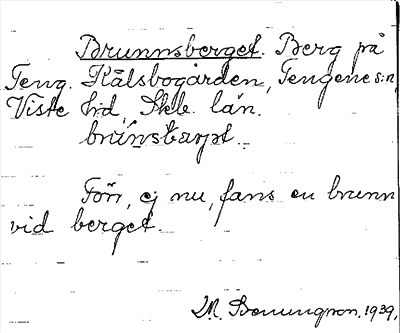 Brunnsberget. Berg på
Teng. Kålsbogården, Tengene s:n,
Viste hd, Skb. län.
brúnsbarjt.
Förr, ej nu, fans en brunn
vid berget.
M. 1939.